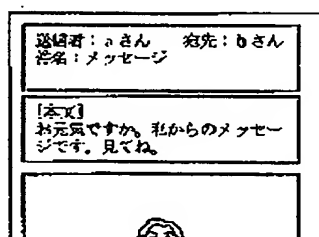 送信者：aさん　宛先：bさん
件名：メッセージ
[本文]
お元気ですか。私からのメッセー
ジです。見てね。